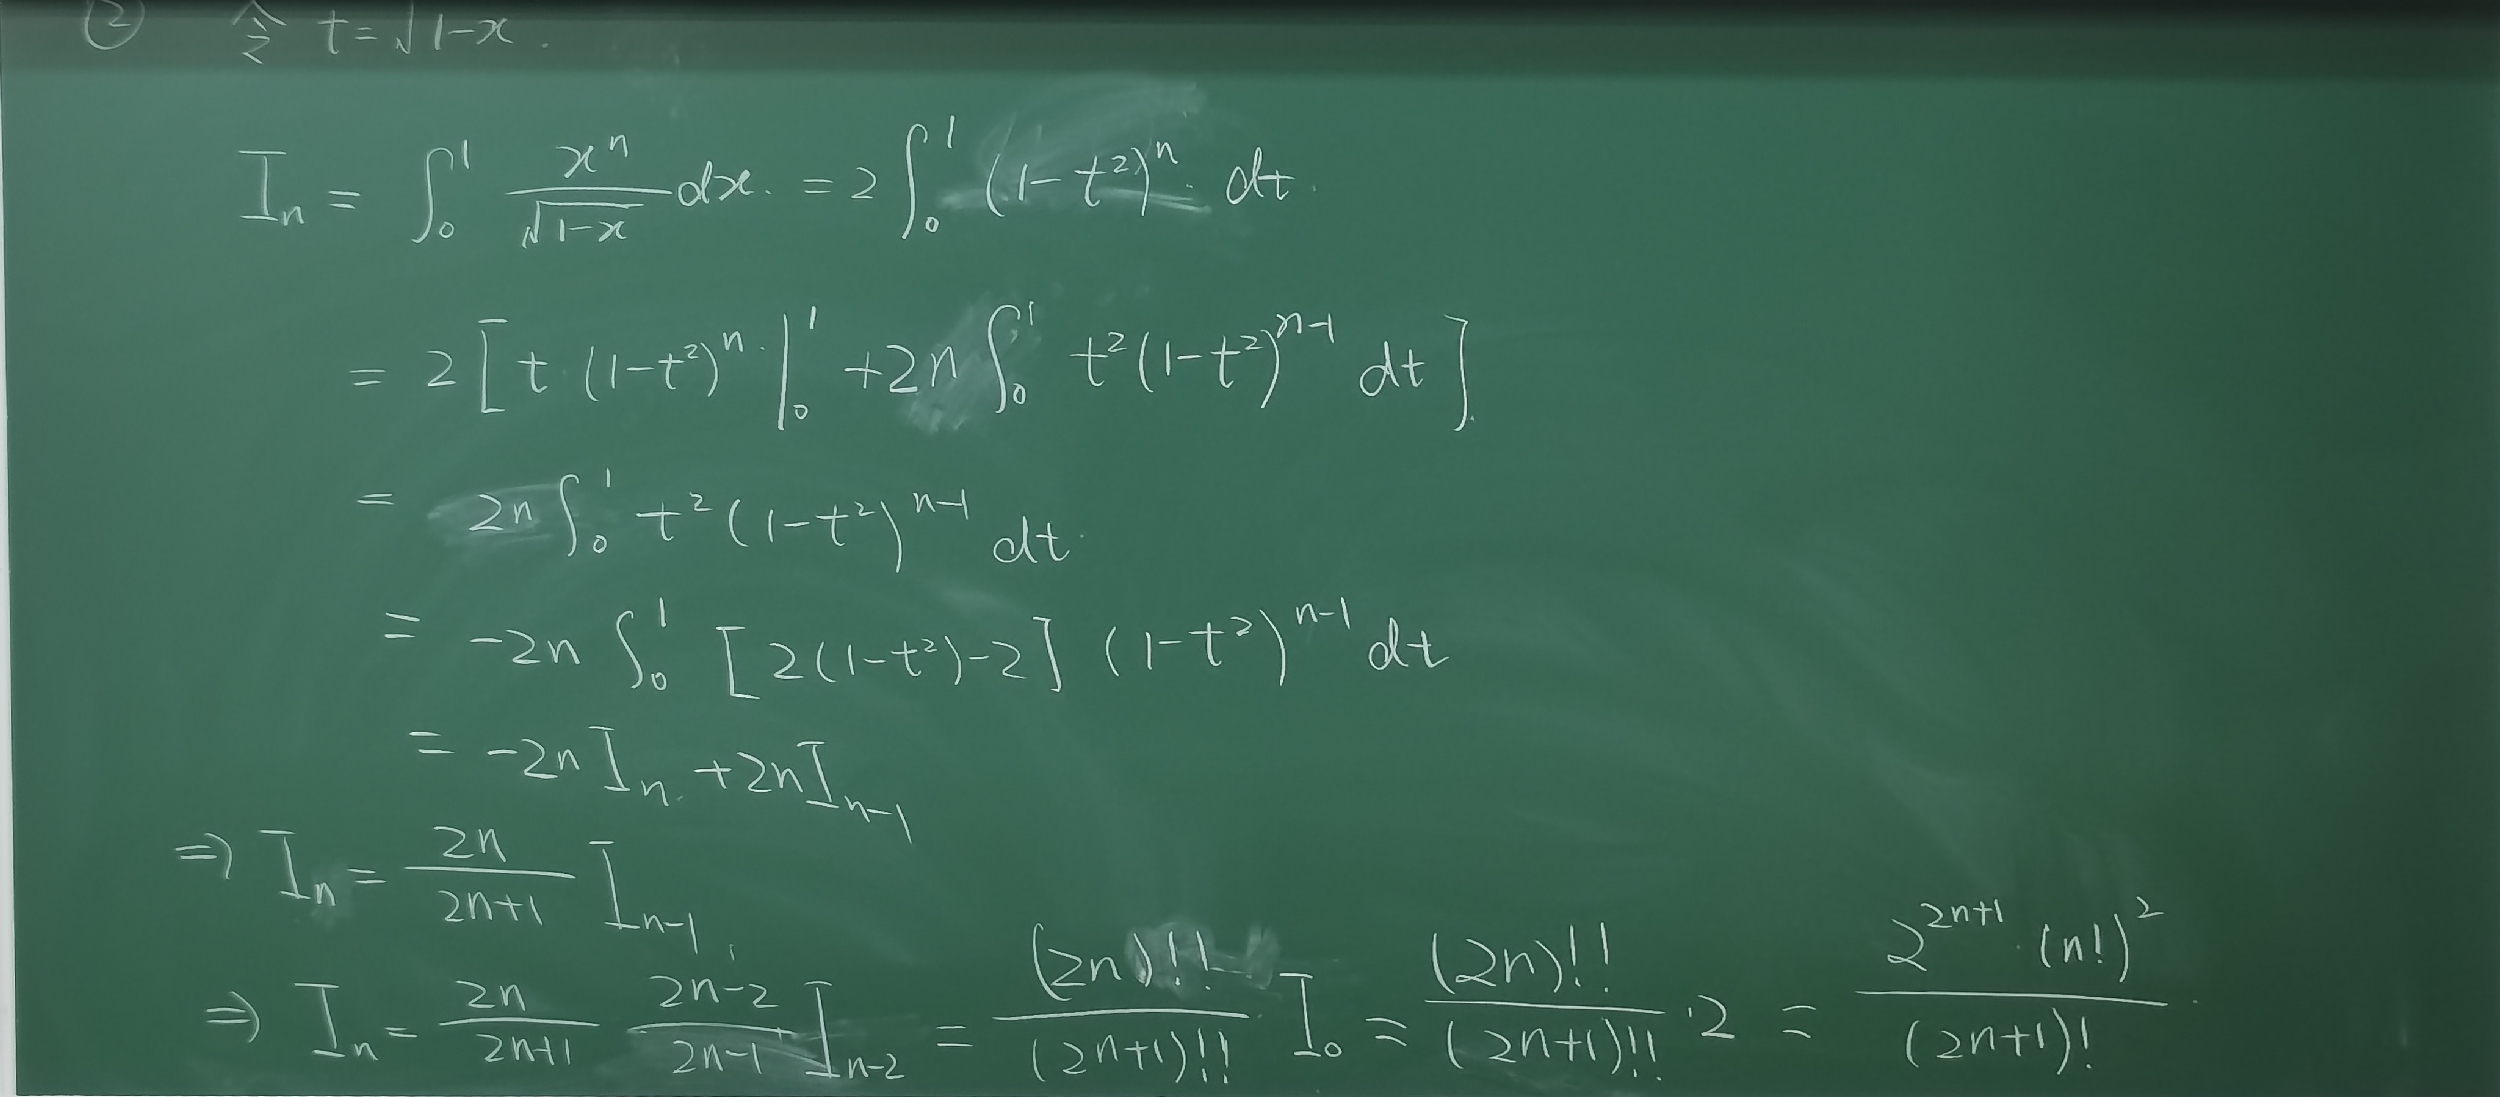 ② 令 t=√1-x.
I_n = ∫_0^1 x^n/√(1-x) dx. = 2∫_0^1 (1-t²)^n dt.
= 2[t (1-t²)^n |_0^1 +2n ∫_0^1 t²(1-t²)^{n-1} dt].
= 2n ∫_0^1 t² (1-t²)^{n-1} dt.
= -2n ∫_0^1 [2(1-t²)-2] (1-t²)^{n-1} dt
= -2n I_n +2n I_{n-1}
⇒ I_n = 2n/(2n+1) I_{n-1}
⇒ I_n = 2n/(2n+1) (2n-2)/(2n-1) I_{n-2} = (2n)!!/(2n+1)!! I_0 = (2n)!!/(2n+1)!! ·2 = 2^{2n+1}·(n!)²/(2n+1)!.